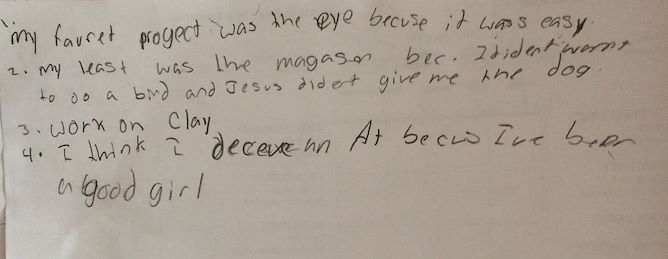 1. my favret progect was the eye becuse it wass easy.
2. my least was the magason bec. I dident wornt
to do a bird and Jesus didet give me the dog.
3. work on Clay
4. I think I deceve an At becus Ive ben
a good girl